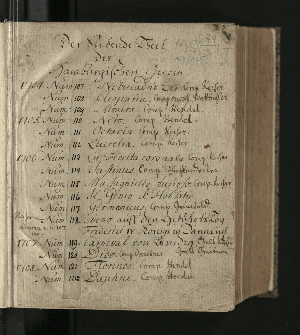 Der Siebende Theil
Der
Hamburgischen Opern
1704. Num 107 Nebucadnezar Comp. Keiser
Num 108 Cleopatra, Componirt Mattheson
Num 109 Almira Comp. Hendel
1705. Num 110 Nero, Comp. Hendel
Num 111 Octavia Comp. Keiser.
Num 112 Lucretia, Comp. Keiser
1706. Num 113 La fedeltà coronata Comp. Keiser
Num 114 Justinus, Comp.
Num 115 Masagniello furioso Comp. Keiser
Num 116 Il Genio d'Holsatia
Num 117 Germanicus, Comp.
Num 118 auf den Geburts Tag
Friderici IV König in Dennem.
1707. Num 119 Carneval von Venedig
Num 120 Dido Comp. Graupner
1708. Num 121 Florindo Comp. Hendel
Num 122 Daphne, Comp. Hendel